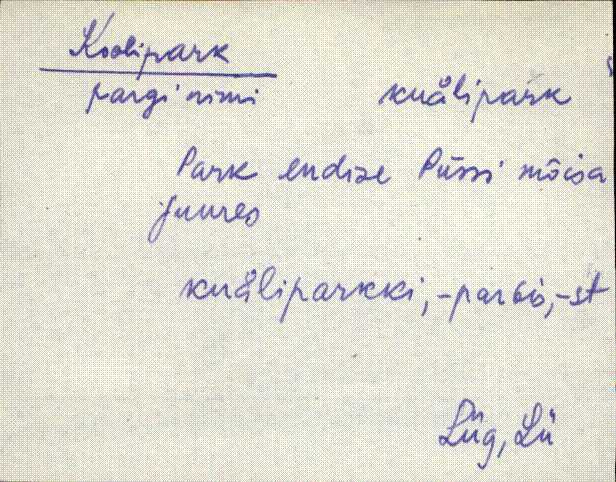 Koolipark
pargi nimi kuålipark
Park endise Püssi mõisa
juures
kuåliparkki, -parɢis, -st
Lüg, Lü